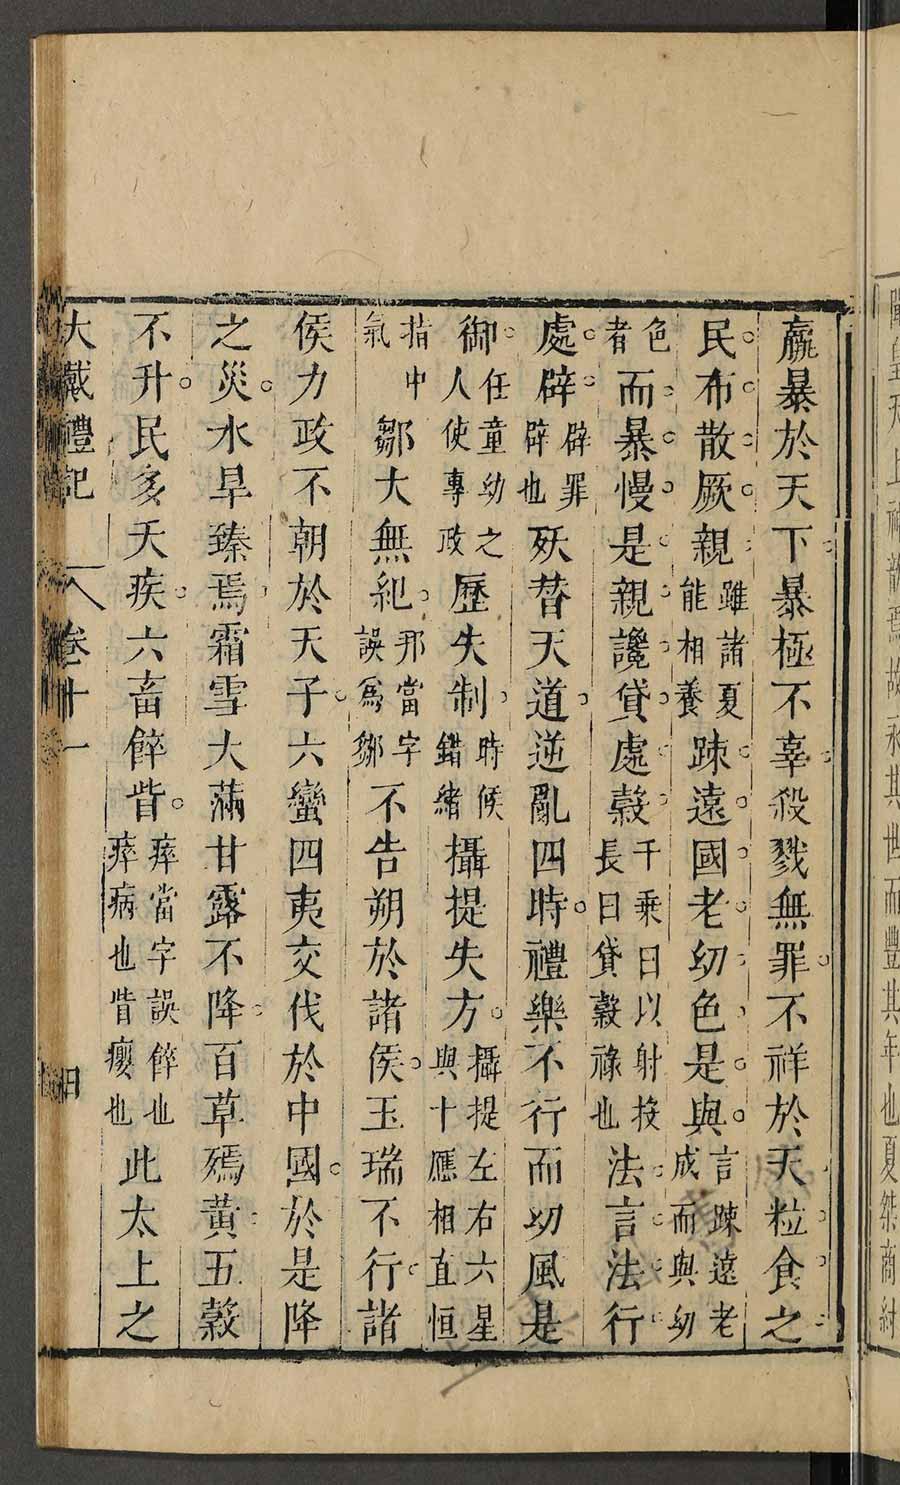 皇天上神歆焉故永其世而豐其年也夏桀商紂
羸暴於天下暴極不辜殺戮無罪不祥於天粒食之
民布散厥親雖諸夏能相養踈遠國老幼色是與言踈遠老成而與幼
色者而暴慢是親讒貸處穀千乘曰以射投長曰貸穀祿也法言法行
處辟辟罪辟也殀替天道逆亂四時禮樂不行而幼風是
御任童幼之人使專政歷失制時候錯緒攝提失方攝提左右六星與十應相直恒
指中氣鄒大無紀那當字誤爲鄒不告朔於諸侯玉瑞不行諸
侯力政不朝於天子六蠻四夷交伐於中國於是降
之災水旱臻焉霜雪大滿甘露不降百草殤黃五穀
不升民多夭疾六畜䬽眥瘁當字誤䬽也瘁病也眥癭也此太上之
大戴禮記 卷十一 四